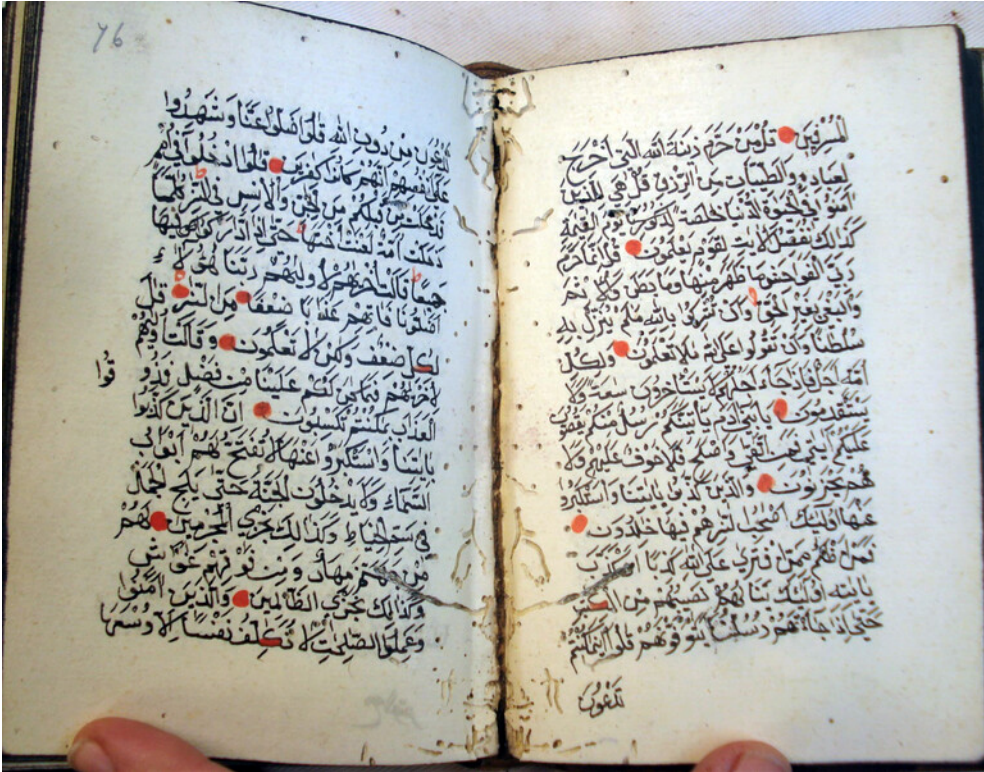 المسرفين قل من حرم زينة الله التي اخرج
لعباده والطيبات من الرزق قل هي للذين
امنوا في الحيوة الدنيا خلصة يوم القيمة
كذلك نفصل الايت لقوم يعلمون قل انما حرم
ربي الفواحش ما ظهر منها وما بطن والاثم
والبغي بغير الحق وان تشركوا بالله ما لم ينزل به
سلطنا وان تقولوا على الله ما لا تعلمون ولكل
امة اجل فاذا جاء اجلهم لا يستاخرون ساعة ولا
يستقدمون يابني ادم اما ياتينكم رسل منكم يقصون
عليكم ايتي فمن اتقى واصلح فلا خوف عليهم ولا
هم يحزنون والذين كذبوا باياتنا واستكبروا
عنها اوليك اصحب النار هم فيها خلدون
فمن اظلم ممن افترى على الله كذبا او كذب
باياته اوليك ينالهم نصيبهم من الكتب
حتى اذا جاءتهم رسلنا يتوفونهم قالوا اين ما كنتم
تدعون
76
تدعون من دون الله قالوا ضلوا عنا وشهدوا
على انفسهم انهم كانوا كفرين قال ادخلوا في امم
قد خلت من قبلكم من الجن والانس في النار كلما
دخلت امة لعنت اختها حتى اذا اداركوا فيها
جميعا قالت اخريهم لاوليهم ربنا هؤلاء
اضلونا فاتهم عذابا ضعفا من النار قال
لكل ضعف ولكن لا تعلمون وقالت اوليهم
لاخريهم فما كان لكم علينا من فضل فذو
قوا
العذاب بما كنتم تكسبون ان الذين كذبوا
باياتنا واستكبروا عنها لا تفتح لهم ابواب
السماء ولا يدخلون الجنة حتى يلج الجمل
في سم الخياط وكذلك نجزي المجرمين لهم
من جهنم مهاد ومن فوقهم غواش
وكذلك نجزي الظالمين والذين امنوا
وعملوا الصلحت لا نكلف نفسا الا وسعها